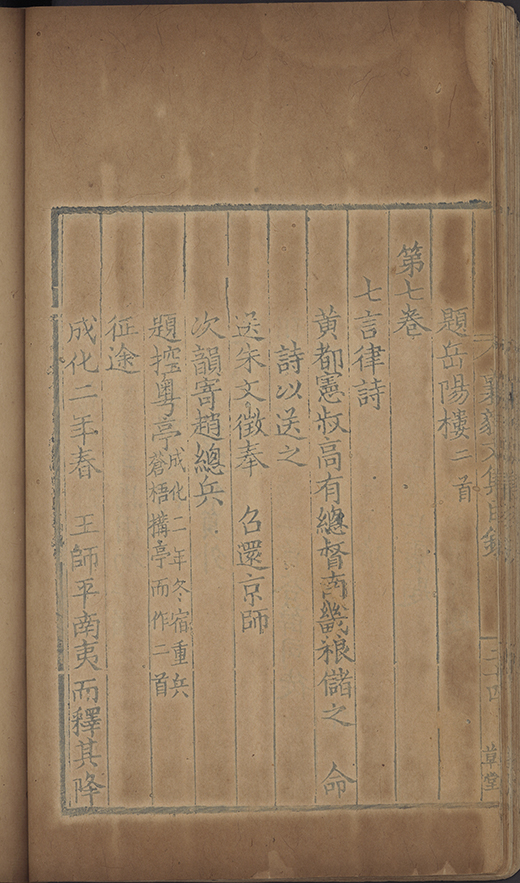 襄毅文集目錄 二十四 草堂
題岳陽樓二首
第七卷
七言律詩
黃都憲叔高有總督南畿粮儲之 命
詩以送之
送朱文徵奉 召還京師
次韻寄趙總兵
題控粵亭成化二年冬宿重兵蒼梧搆亭而作二首
征途
成化二年春 王師平南夷而釋其降